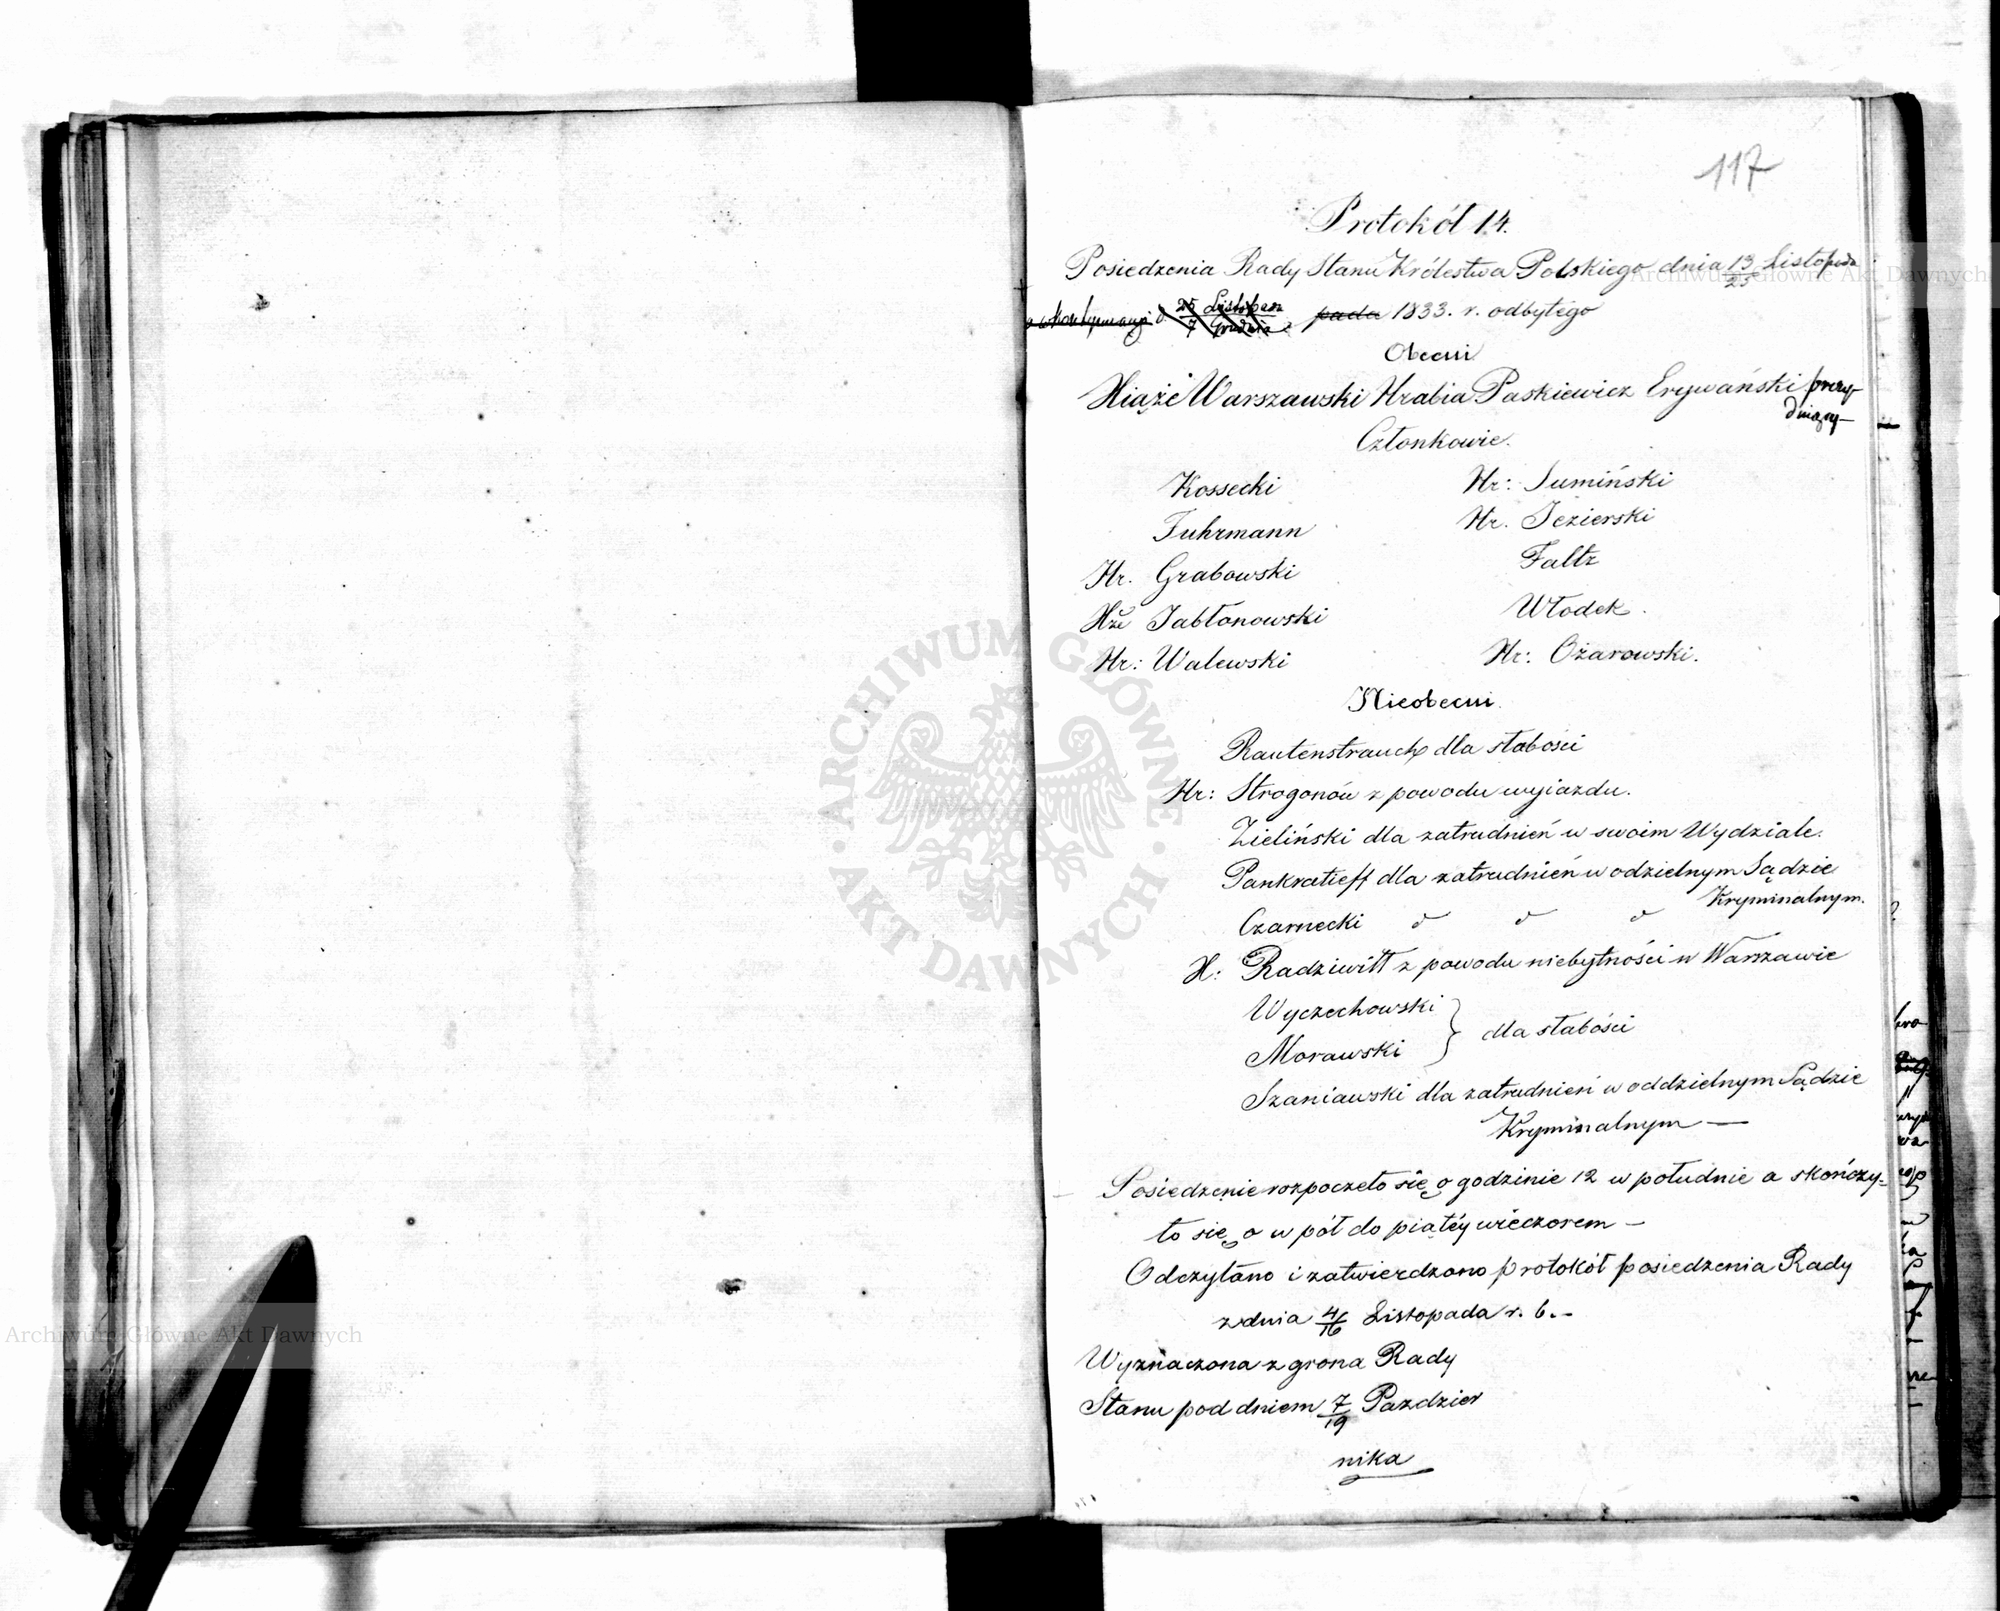 117
Protokół 14.
Posiedzenia Rady Stanu Królestwa Polskiego dnia 13/25 Listopada
25 Listopada / 7 Grudnia pada 1833. r. odbytego
Obecni
Xiąże Warszawski Hrabia Paskiewicz Erywański prezy-
dniący
Członkowie.
Kossecki Hr: Sumiński
Fuhrmann Hr. Jezierski
Hr. Grabowski Faltz
Xże Jabłonowski Włodek.
Hr: Walewski Hr: Ożarowski.
Nieobecni
Rautenstrauch dla słabości
Hr: Strogonów z powodu wyiazdu.
Zieliński dla zatrudnień w swoim Wydziale.
Pankratieff dla zatrudnień w odzielnym Sądzie
Kryminalnym.
Czarnecki d d d
X: Radziwiłł z powodu niebytności w Warszawie
Wyczechowski
Morawski } dla słabości
Szaniawski dla zatrudnień w oddzielnym Sądzie
Kryminalnym —
Posiedzenie rozpoczęło się o godzinie 12 w południe a skończy-
ło się o w pół do piątéy wieczorem —
Odczytano i zatwierdzono protokół posiedzenia Rady
z dnia 4/16 Listopada r. b. -
Wyznaczona z grona Rady
Stanu pod dniem 7/19 Pazdzier
nika
ARCHIWUM GŁÓWNE · AKT DAWNYCH ·
Archiwum Główne Akt Dawnych
Archiwum Główne Akt Dawnych